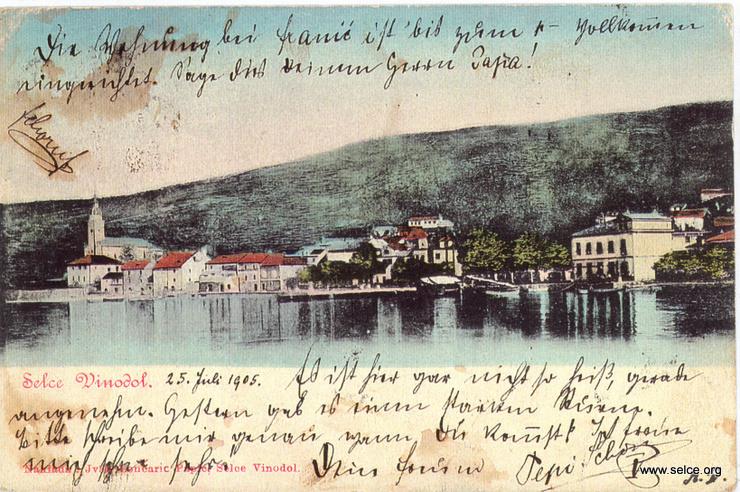 Die Wohnung bei Franić ist bis zum vollkommen
eingerichtet. Sage dies Deinem Herrn Papa!
Selce Vinodol. 25. Juli 1905. Es ist hier gar nicht so heiß, gerade
angenehm. Gestern gab es einen starken Sturm.
Bitte schreibe mir genau, wann Du kommst! Ich freue
mich schon sehr. Dein Freund Pepi
Naklada Papić Selce Vinodol.
www.selce.org